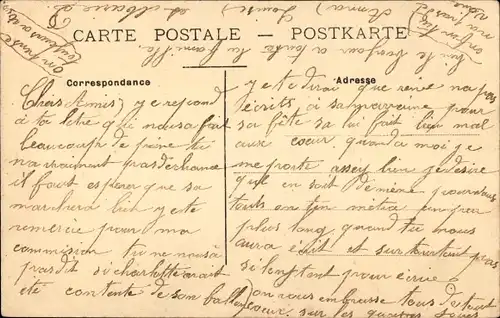 CARTE POSTALE - POSTKARTE
Correspondance
Chers Amis, je respond
à ta letre qui nous a fait
beaucoup de peine tu
na vraiment pas de chance
il faut esperer que sa
marchera bien je te
remercie pour ma
commision tu ne nous a
pas dit si charlotte avait
été contente de son
Adresse
je te dirai que rené na pas
écrits à sa marraine pour
sa fête sa lui fait bien mal
aux coeur quand a moi je
me porte assez bien je desire
qu'il en soit de même pour vous
tous
plus long quand tu nous
aura écrit et surtout pas
si longtant pour écrire
on vous embrasse tous de tout
coeur sur les quatres joues
toute la famille
Louise